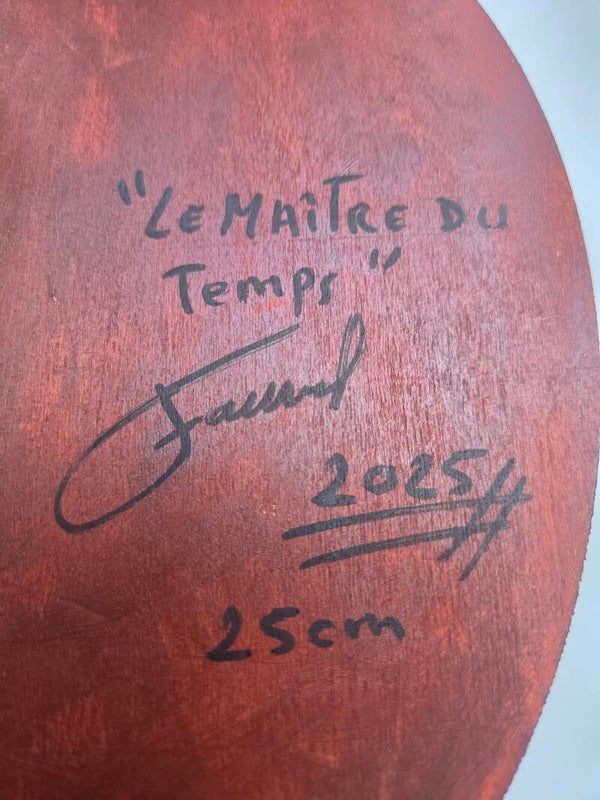 "LE MAÎTRE DU
Temps"
2025
25cm